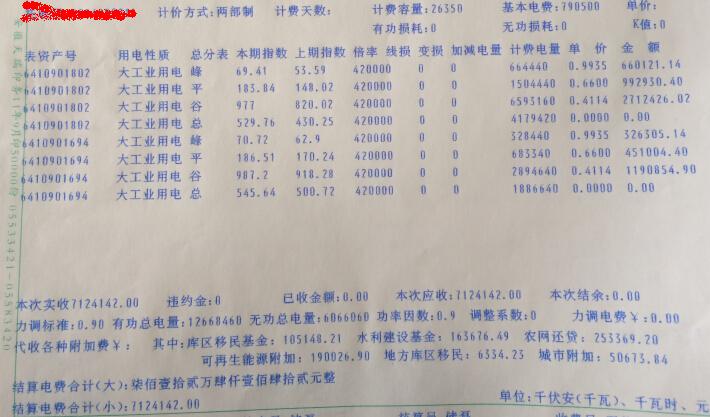 计价方式:两部制 计费天数: 计费容量:26350 基本电费:790500 单价:
有功损耗:0 无功损耗:0 K值:0
表资产号 用电性质 总分表 本期指数 上期指数 倍率 线损 变损 加减电量 计费电量 单 价 金 额
6410901802 大工业用电 峰 69.41 53.59 420000 0 0 664440 0.9935 660121.14
6410901802 大工业用电 平 183.84 148.02 420000 0 0 1504440 0.6600 992930.40
6410901802 大工业用电 谷 977 820.02 420000 0 0 6593160 0.4114 2712426.02
6410901802 大工业用电 总 529.76 430.25 420000 0 0 4179420 0.0000 0.00
6410901694 大工业用电 峰 70.72 62.9 420000 0 0 328440 0.9935 326305.14
6410901694 大工业用电 平 186.51 170.24 420000 0 0 683340 0.6600 451004.40
6410901694 大工业用电 谷 987.2 918.28 420000 0 0 2894640 0.4114 1190854.90
6410901694 大工业用电 总 545.64 500.72 420000 0 0 1886640 0.0000 0.00
本次实收7124142.00 违约金:0 已收金额:0.00 本次应收:7124142.00 本次结余:0.00
力调标准:0.90 有功总电量:12668460 无功总电量:6066060 功率因数:0.9 调整系数:0 力调电费¥:0.00
代收各种附加费¥: 其中:库区移民基金:105148.21 水利建设基金:163676.49 农网还贷:253369.20
可再生能源附加:190026.90 地方库区移民:6334.23 城市附加:50673.84
结算电费合计(大):柒佰壹拾贰万肆仟壹佰肆拾贰元整
结算电费合计(小):7124142.00 单位:千伏安(千瓦)、千瓦时、元